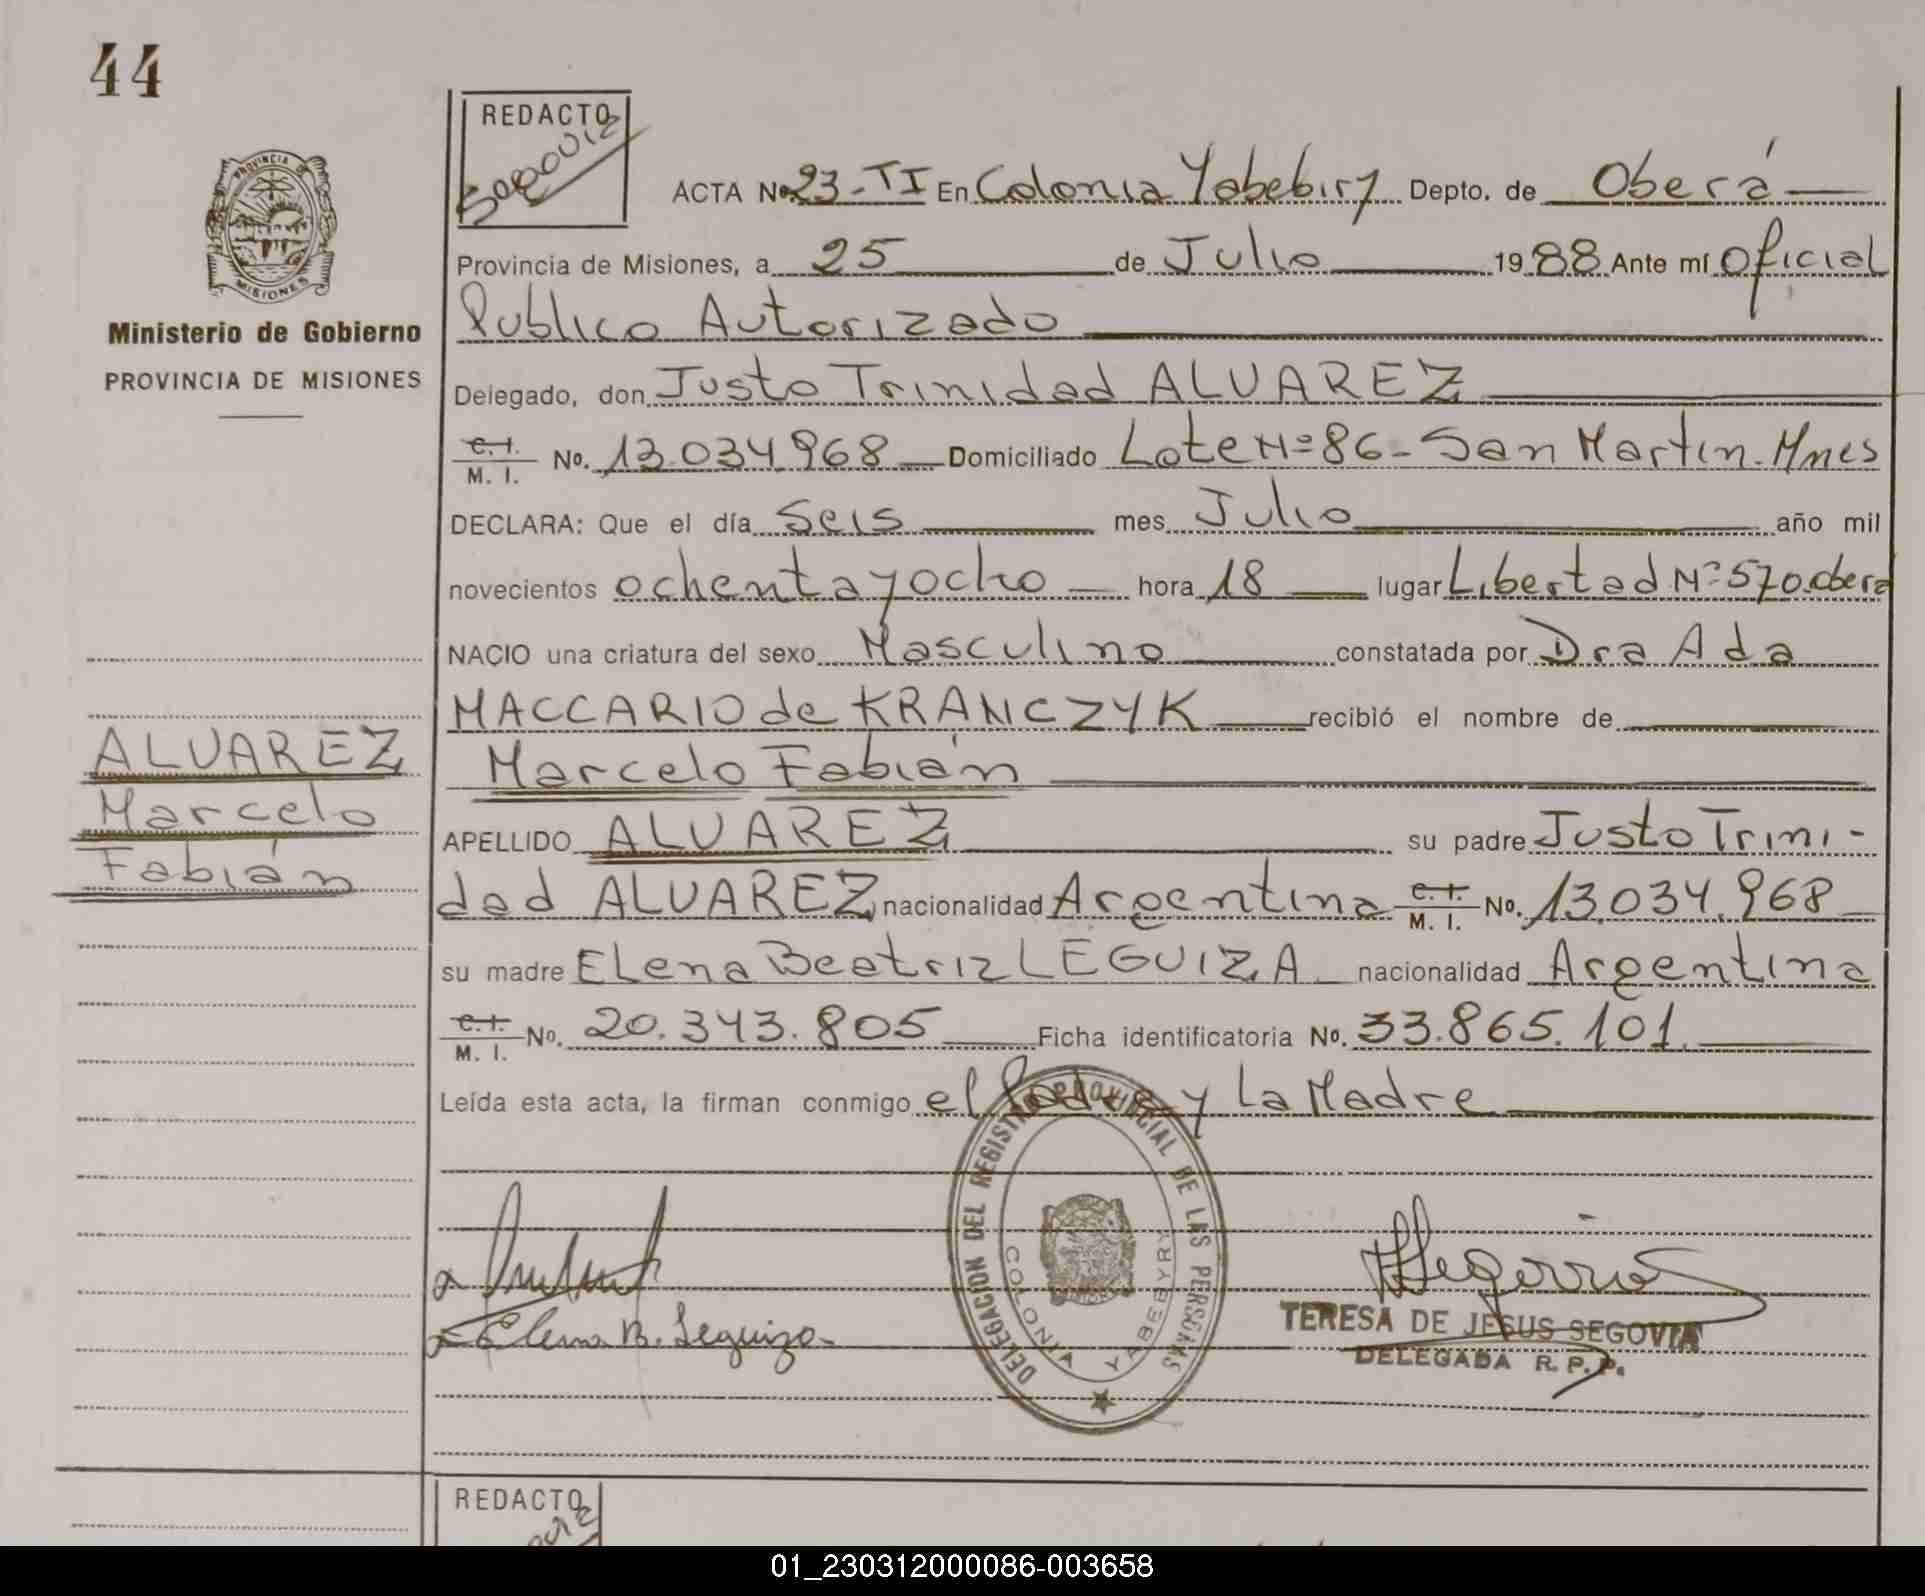 44
REDACTO
PROVINCIA DE
MISIONES
Ministerio de Gobierno
PROVINCIA DE MISIONES
ACTA No. 23-TI En Colonia Yabebiry Depto. de Oberá
Provincia de Misiones, a 25 de Julio 1988 Ante mí Oficial
Publico Autorizado
Delegado, don Justo Trinidad ALVAREZ
C.I. M. I. No. 13.034.968 Domiciliado Lote Nº 86 - San Martin. Mnes
DECLARA: Que el día Seis mes Julio año mil
novecientos ochenta y ocho hora 18 lugar Libertad Nº 570. Obera
NACIO una criatura del sexo Masculino constatada por Dra Ada
MACCARIO de KRANCZYK recibió el nombre de
Marcelo Fabián
APELLIDO ALVAREZ su padre Justo Trini-
dad ALVAREZ nacionalidad Argentina C.I. M. I. No. 13.034.968
su madre Elena Beatriz LEGUIZA nacionalidad Argentina
C.I. M. I. No. 20.343.805 Ficha identificatoria No. 33.865.101
Leída esta acta, la firman conmigo el Padre y La Madre
ALVAREZ
Marcelo
Fabián
DELEGACION DEL REGISTRO PROVINCIAL DE LAS PERSONAS
COLONIA YABEBYRY
Elena B. Leguiza
TERESA DE JESUS SEGOVIA
DELEGADA R. P. P.
REDACTO
01_230312000086-003658